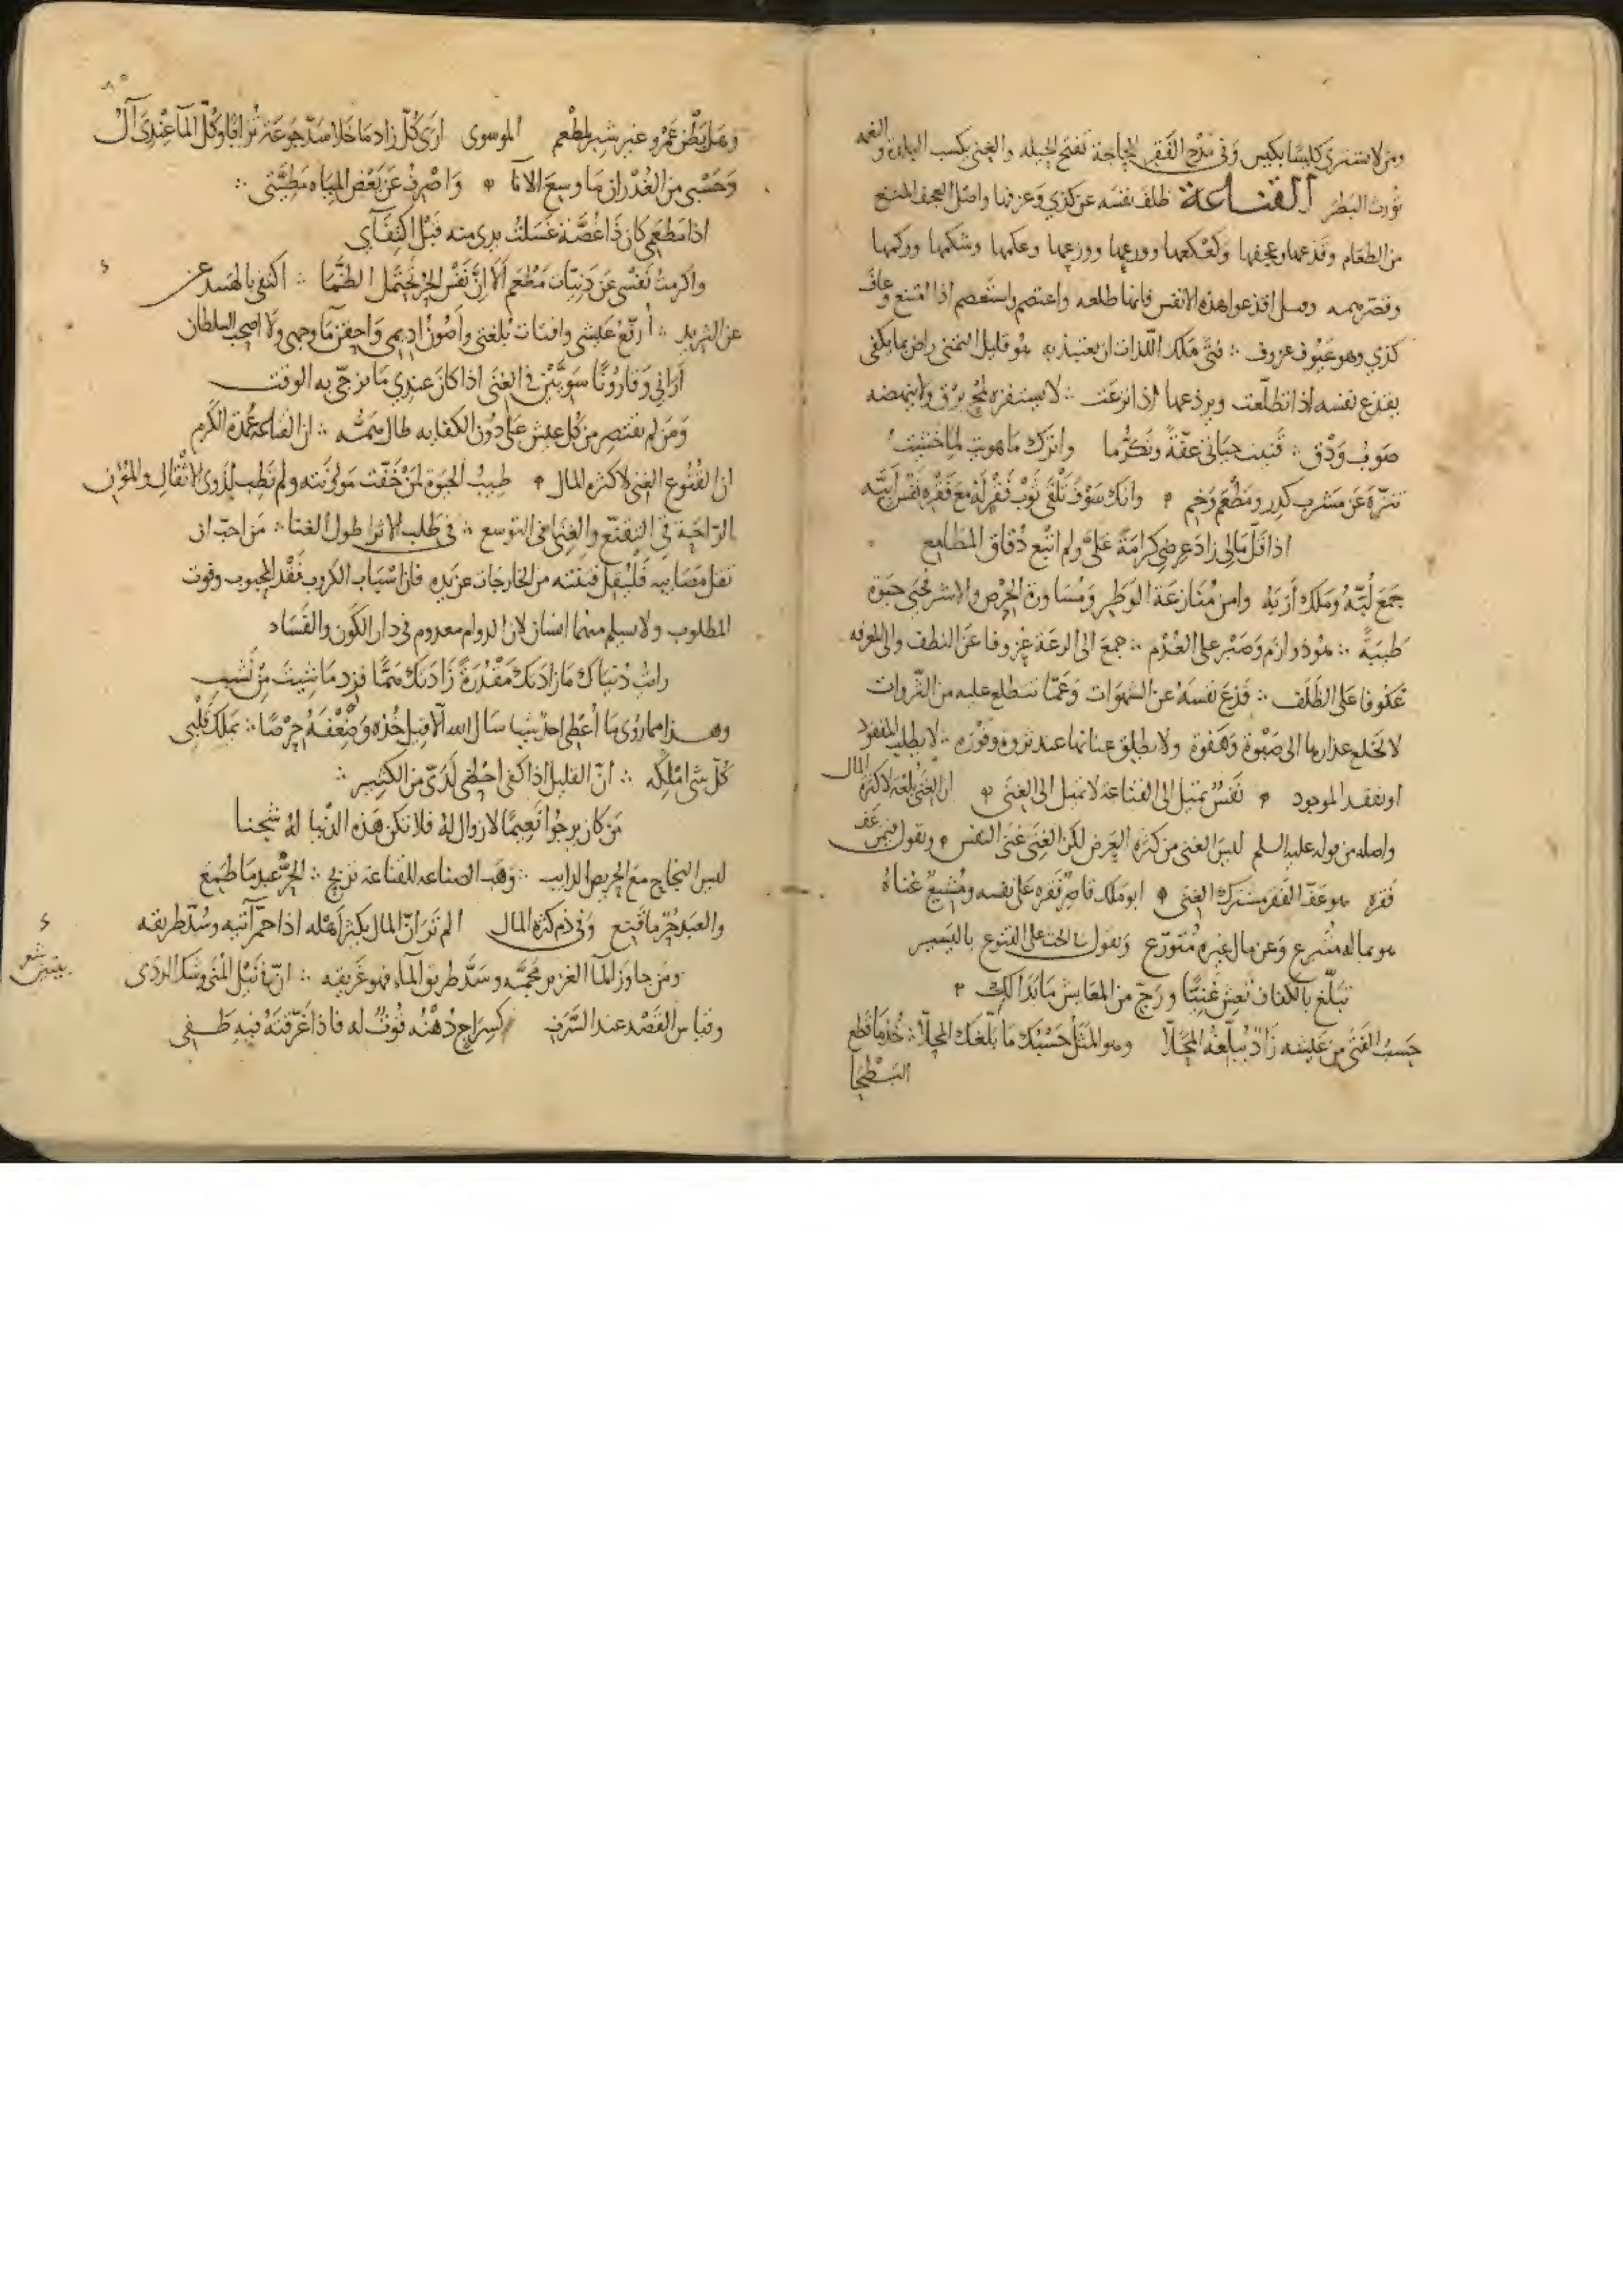 ومن لا يشتري كيسا بكيس وفي مدح الفقر الحاجة تفتح الحيله والغنى يكسب البلادة والنعمه
تورث البطر القناعة ظلف نفسه عن كذي وعزفها واصل العجف المنع
من الطعام وقذعها وعجفها وكعكعها وورعها ووزعها وعكمها وشكمها ووكمها
وقصر همه وقيل اقذعوا هذه الانفس فانها طلعه واعتصم واستعصم اذا امتنع وعاف
كذي وهو عيوف عزوف ∴ فتى ملك اللذات ان يعتبذ به هو قليل التمني راض بما يكفي
يقذع نفسه اذا تطلعت ويردعها اذا نزعت ∴ لا يستفزه لمح برق ولا ينهضه
صوب ودق ∴ قنيت حياتي عفة وتكرما واترك ما هويت لما خشيت
تنزه عن مشرب كدر ومطعم وخيم وانك سوف تلقى ثوب فقر له مع فقره نفس ابيه
اذا قل مالي زاد عرضي كرامة علي ولم اتبع دقاق المطامع
جمع لبه وملك اربه وامن منازعة الوطر ومساورة الحرص والاشر فحيي حيوة
طيبة ∴ هو ذو ازم وصبر على العدم ∴ جمع الى الرعة عزوفا عن النطف والى المعرفه
عكوفا على الظلف ∴ قذع نفسه عن الشهوات وعما تتطلع عليه من الثروات
لا يخلع عذارها الى صبوة وهفوة ولا يطلق عنانها عند ثروة وفورة ∴ لا يطلب المفقود
او يفقد الموجود نفس تميل الى القناعة لا تميل الى الغنى ان الغنى بلغة لا كثرة المال
واصله من قوله عليه السلم ليس الغنى من كثرة العرض لكن الغنى غنى النفس ويقول فيمن عف
فقره هو عف الفقر مشترك الغنى ابو ملك قاصر فقره على نفسه ومشيع غناه
هو بماله متبرع وعن مال غيره متورع ويقول في الحث على القنوع باليسير
تبلغ بالكفاف تعش غنيا ورج من المعايش ما بدا لك
حسب الفتى من عيشه زاد يبلغه المحلا وهو المثل حسبك ما بلغك المحلا ∴ خذ ما قطع
البطحا
وهل بطن عمرو غير شبر لمطعم الموسوي ارى كل زاد ما خلا سد جوعة ترابا وكل الما عندي آل
وحسبي من الغدران ما وسع الانا واصرف عن بعض المياه مطيتي ∴
اذا مطعمي كان ذا غصة غسلت يدي منه قبل اكتفآي
واكرمت نفسي عن دنيات مطعم الا ان نفس الحر تحتمل الظما ∴ اكتفي بالهبيد عن
عن الثريد ∴ ارقع عيشي واقتات بلغتي واصون اديمي واحقن ما وجهي ولا اصحب السلطان
اراني وقارونا سويين في الغنى اذا كان عندي ما يزجى به الوقت
ومن لم يقتصر من كل عيش على دون الكفايه طال همه ∴ ان القناعة عمدة الكرم
ان القنوع الغنى لا كثرة المال طيب الحيوة لمن خفت مؤنته ولم تطب لذوي الاثقال والمؤن
الراحة في التقنع والغنى في التوسع ∴ في طلب الاثرا طول العنا ∴ من احب ان
تقل مصايبه فليقل قنيته من الخارجات عن يده فان اسباب الكروب فقد المحبوب وفوت
المطلوب ولا يسلم منهما انسان لان الدوام معدوم في دار الكون والفساد
رايت دنياك ما زادتك مقدرة زادتك هما فزد ما شيت من نشب
وهذا مما روي ما اعطي احد شيا سال الله الا قيل خذه وضعفه حرصا ∴ يملك قلبي
كل شي املكه ∴ ان القليل اذا كفى احظى لدي من الكثير ∴
من كان يرجوا نعيما لا زوال له فلا تكن هذه الدنيا له شجنا
ليس النجاح مع الحريص الدايب ∴ وهب الصناعه للقناعة تربح ∴ الحر عبد ما طمع
والعبد حر ما قنع وفي ذم كثرة المال الم تر ان المال يكثر اهله اذا جم آتيه وسد طريقه
ومن جاوز الما الغزير مجمه وسد طريق الماء فهو غريقه ∴ ان في نيل المنى وشك الردى
وقياس القصد عند السرف كسراج دهنه قوت له فاذا غرقته فيه طفي
شعر